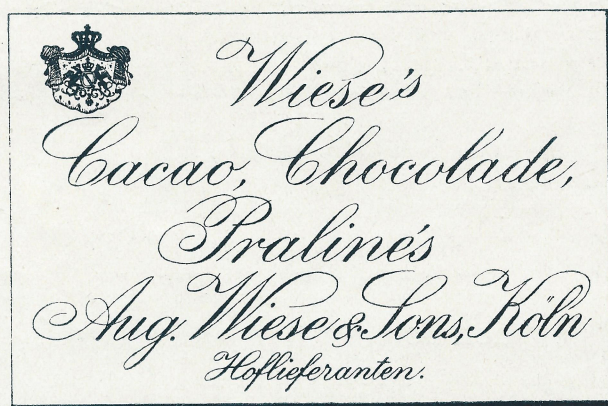 Wiese's
Cacao, Chocolade,
Praliné's
Aug. Wiese & Sons, Köln
Hoflieferanten.